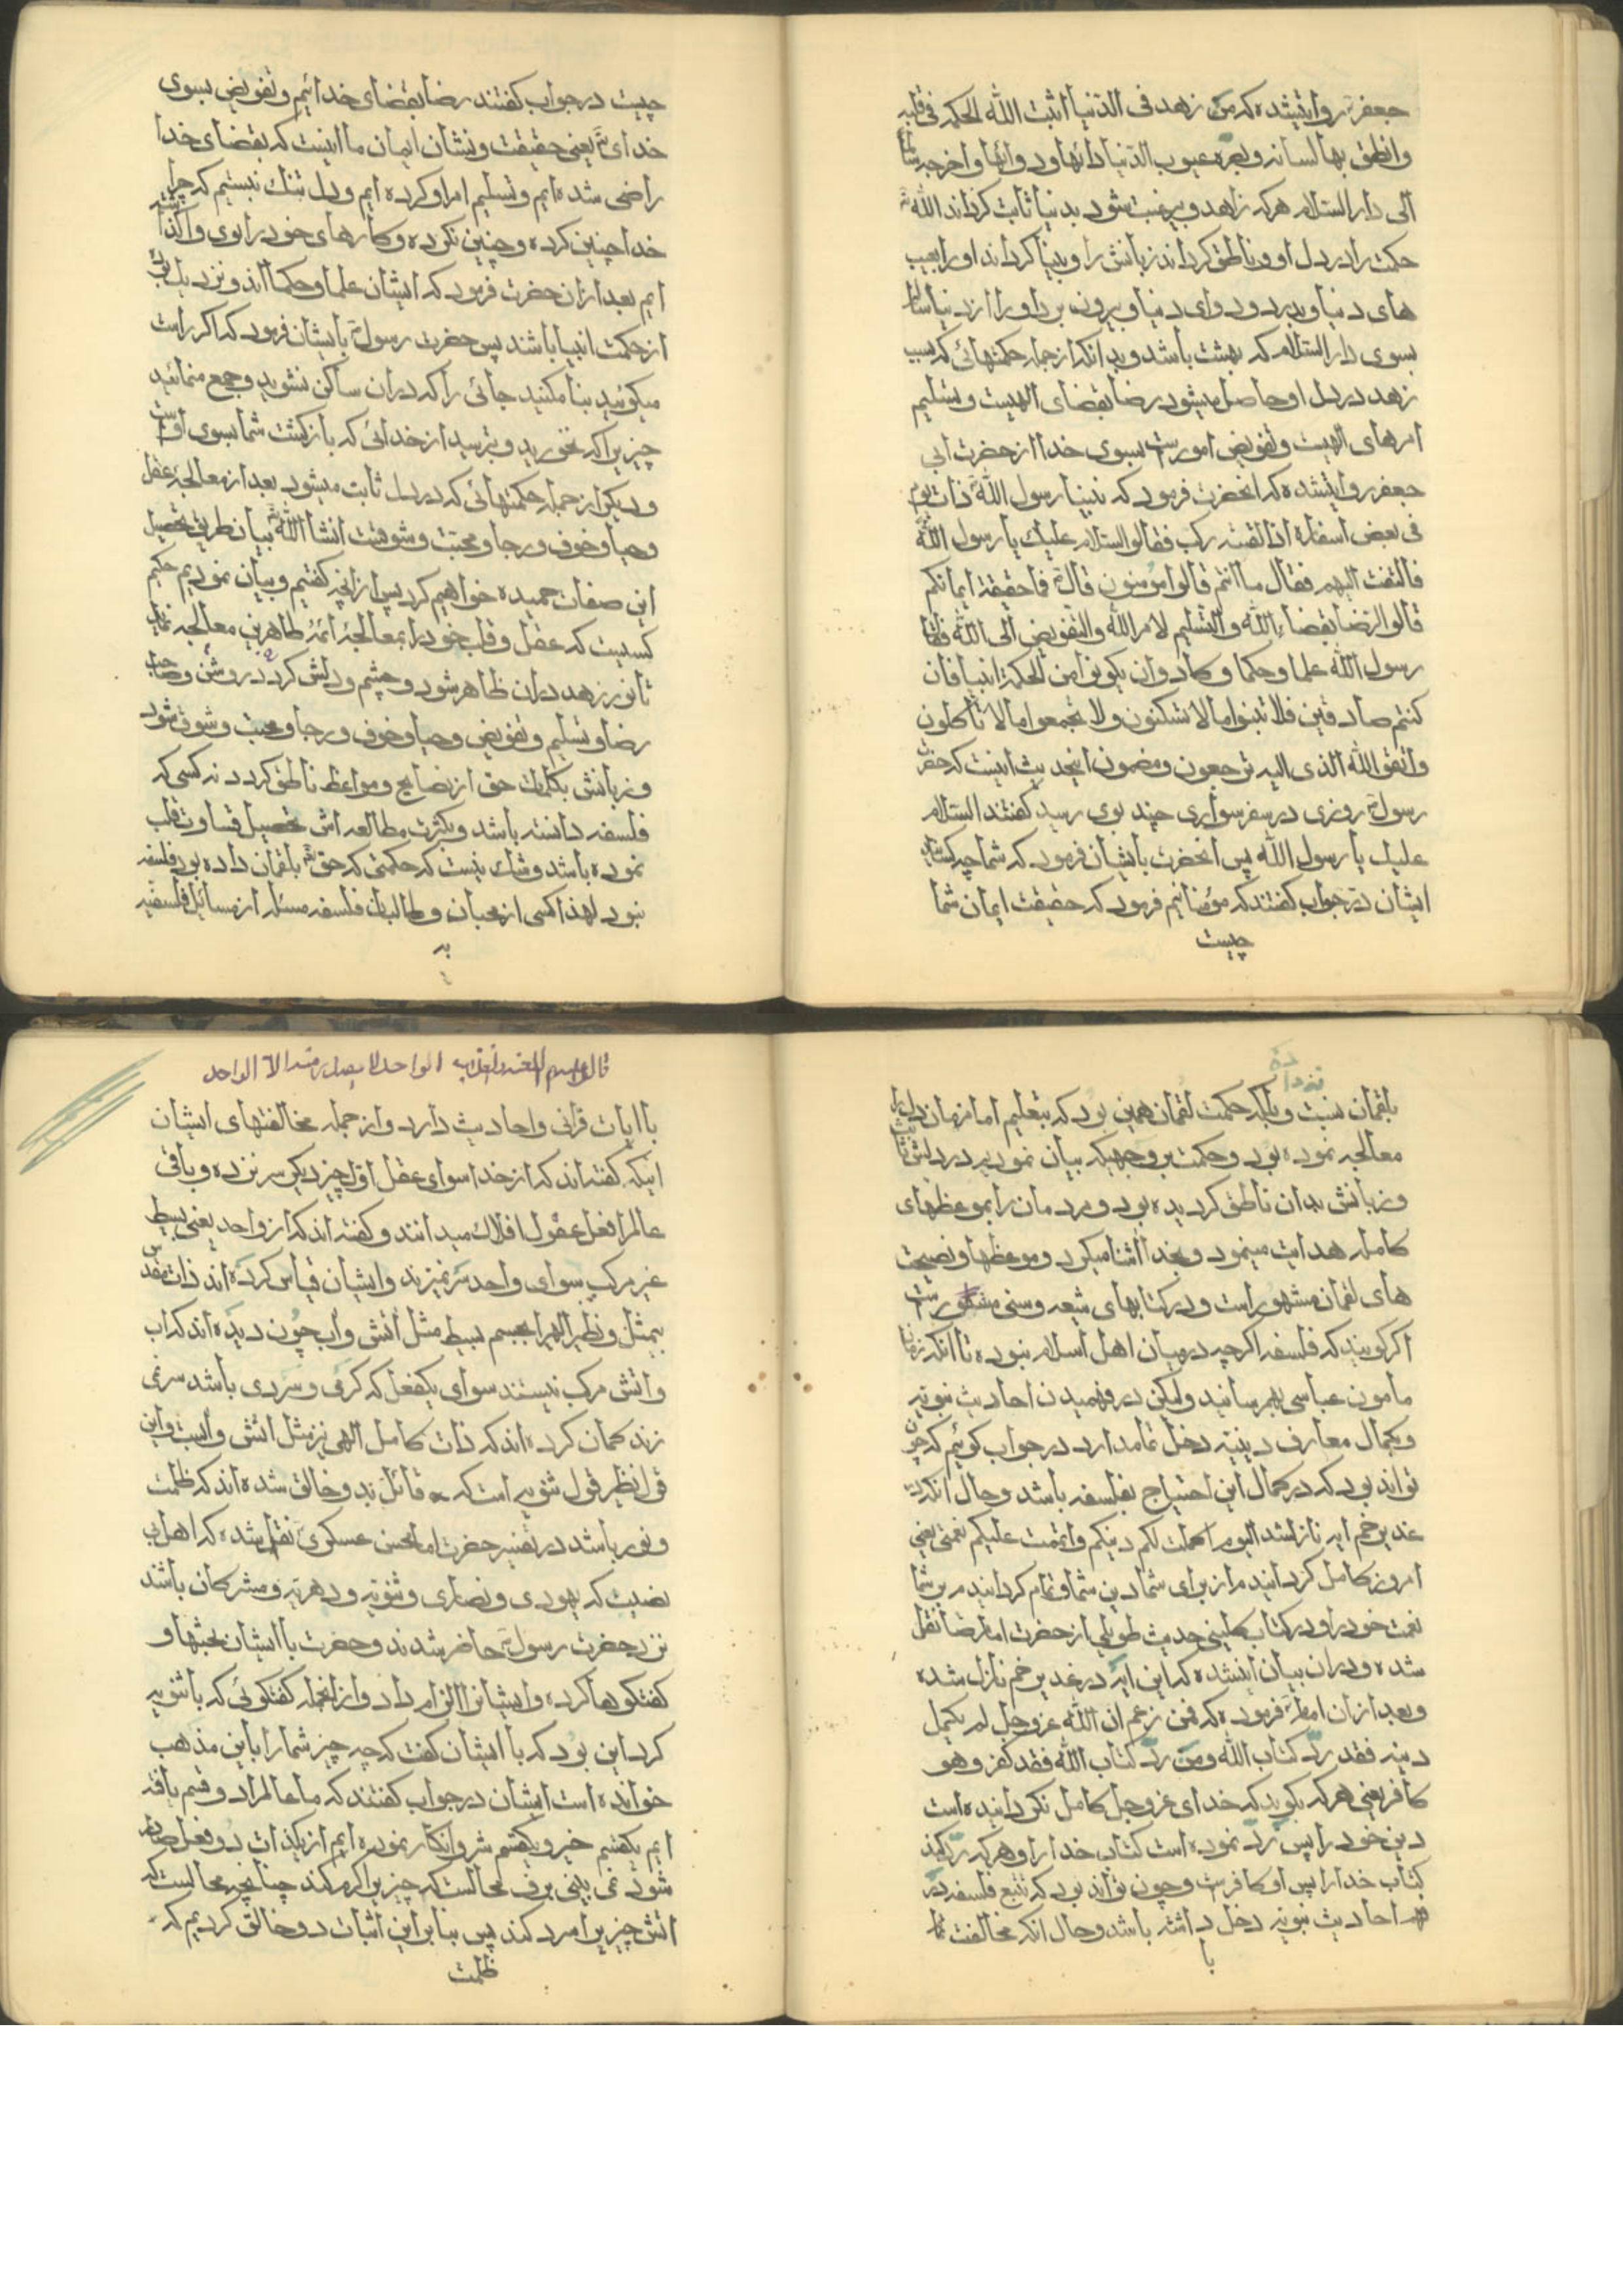 جعفر۴ روایتشده که من زهد فی الدنیا اثبت الله الحکمه فی قلبه
وانطق بها لسانه وبصره عیوب الدنیا دائها ودوائها واخرجه سالما
الی دار السلام هرکه زاهد وبیرغبت شود بدنیا ثابت کرداند الله
حکمت را در دل او وناطق کرداند زبانش را وبینا کرداند او را بعیب
های دنیا وبدرد ودوای دنیا وبیرون برد او را از دنیا سالم
بسوی دار السلام که بهشت باشد وبدانکه از جمله حکمتهائی که بسبب
زهد در دل او حاصل میشود رضا بقضای الهیست وتسلیم
امرهای الهیست وتفویض امورست بسوی خدا از حضرت ابی
جعفر روایتشده که انحضرت فرمود که بینا رسول الله ذات یوم
فی بعض اسفاره اذا لقیه رکب فقالو السلام علیك یا رسول الله
فالتفت الیهم فقال ما انتم قالوا مؤمنون قال فما حقیقة ایمانکم
قالو الرضا بقضاء الله والتسلیم لامر الله والتفویض الی الله فقال
رسول الله علما وحکما وکادوا ان یکونوا من الحکمة انبیا فان
کنتم صادقین فلا تبنوا ما لا تسکنون ولا تجمعوا ما لا تاکلون
واتقو الله الذی الیه ترجعون ومضمون اینحدیث اینست که حضرت
رسول۴ روزی در سفر سواری چند بوی رسید کفتند السلام
علیك یا رسول الله پس انحضرت بایشان فرمود که شما چه کسانید
ایشان در جواب کفتند که مؤمنانیم فرمود که حقیقت ایمان شما
چیست
چیست در جواب کفتند رضا بقضای خدائیم وتفویض بسوی
خدای یعنی حقیقت ونشان ایمان ما اینست که بقضای خدا
راضی شده ایم وتسلیم امر او کرده ایم ودل تنك نیستیم که چرا
خدا چنین کرده وچنین نکرده وکارهای خود را بوی واکذاشته
ایم بعد ازان حضرت فرمود که ایشان علما وحکما اند ونزدیك بود
از حکمت انبیا باشند پس حضرت رسول۴ بایشان فرمود که اکر راست
میکوئید بنا مکنید جائی را که دران ساکن نشوید وجمع منمائید
چیزیرا که نخورید وبترسید از خدائی که بازکشت شما بسوی اوست
ودیکر از جمله حکمتهائی که در دل ثابت میشود بعد از معالجهٔ عقل
وحیا وخوف ورجا ومحبت وشوقست انشا الله بیان طریق تحصیل
این صفات حمیده خواهیم کرد پس ازانچه کفتیم وبیان نمودیم حکیم
کسیست که عقل وقلب خود را بمعالجهٔ ائمهٔ طاهرین معالجه نماید
تا نور زهد دران ظاهر شود وچشم ودلش کردد روشن وصاحب
رضا وتسلیم وتفویض وحیا وخوف ورجا ومحبت وشوق شود
وزبانش بکلمات حق از نصایح ومواعظ ناطق کردد نه کسی که
فلسفه دانسته باشد وبکثرت مطالعه اش تحصیل قساوت قلب
نموده باشد وشك نیست که حکمتی که حق بلقمان داده بود فلسفه
نبود لهذا کسی از محبان وطالبان فلسفه مسئله از مسائل فلسفیه
به
بلقمان نسبت نداده وبلکه حکمت لقمان همین بود که بتعلیم امام زمان دل را
معالجه نموده بود وحکمت بروجهیکه بیان نمودیم در دلش ثابت
وزبانش بدان ناطق کردیده بود ومردمان را بموعظهای
کامله هدایت مینمود وبخدا اشنا میکرد وموعظها ونصیحت
های لقمان مشهور است ودر کتابهای شیعه وسنی مذکورست
اکر کویند که فلسفه اکرچه در میان اهل اسلام نبوده تا انکه زمان
مامون عباسی بهم رسانید ولیکن در فهمیدن احادیث نبویه
وکمال معارف دینیه دخل تمام دارد در جواب کوئیم که چون
تواند بود که در کمال این احتیاج بفلسفه باشد وحال انکه در
غدیر خم ایه نازلشد الیوم اکملت لکم دینکم واتممت علیکم نعمتی یعنی
امروز کامل کردانیدم از برای شما دین شما وتمام کردانیدم بر شما
نعمت خود را ودر کتاب کلینی حدیث طویلی از حضرت امام رضا نقل
شده ودران بیان اینشده که این ایه در غدیر خم نازل شده
وبعد ازان امام فرموده که فمن زعم ان الله عز وجل لم یکمل
دینه فقد رد کتاب الله ومن رد کتاب الله فقد کفر وهو
کافر یعنی هرکه بکوید که خدای عز وجل کامل نکردانیده است
دین خود را پس رد نموده است کتاب خدا را وهرکه رد کند
کتاب خدا را پس او کافرست وچون تواند بود که تتبع فلسفه در
احادیث نبویه دخل داشته باشد وحال انکه مخالفت
با
الواحد لا یصدر منه الا الواحد
با ایات قرانی واحادیث دارد واز جمله مخالفتهای ایشان
اینکه کفته اند که از خدا سوای عقل اول چیز دیکر سر نزده وباقی
عالم را فعل عقول افلاك میدانند وکفته اند که از واحد یعنی بسیط
غیر مرکب سوای واحد سر نمیزند وایشان قیاس کرده اند ذات مقدس
بیمثل ونظیر الهرا بجسم بسیط مثل آتش وآب چون دیده اند که آب
واتش مرکب نیستند سوای یکفعل که کرمی وسردی باشد سر نمی
زند کمان کرده اند که ذات کامل الهی نیز مثل اتش وآبست واین
قول نظیر قول ثنویه است که قائل بدو خالق شده اند که ظلمت
ونور باشد در تفسیر حضرت امام حسن عسکری نقلشده که اهل
که یهودی ونصاری وثنویه ودهریه ومشرکان باشد
نزد حضرت رسول۴ حاضر شدند وحضرت با ایشان بحثها و
کفتکوها کرده وایشانرا الزام داد وازانجمله کفتکوئی که با ثنویه
کرد این بود که با ایشان کفت که چه چیز شما را باین مذهب
خوانده است ایشان در جواب کفتند که ما عالم را دو قسم یافته
ایم یکقسم خیر ویکقسم شر وانکار نموده ایم از یکذات دو فعل صادر
شود نمی بینی برف محالست که چیزیرا کرم کند چنانچه محالست که
اتش چیزیرا سرد کند پس بنا براین اثبات دو خالق کردیم که
ظلمت